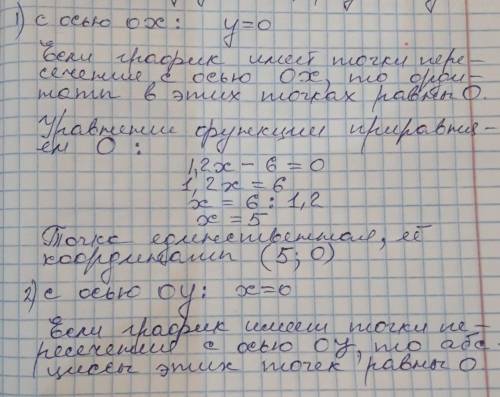 1) с осью ОХ: y=0
Если график имеет точки пере-
сечение с осью ОХ, то орди-
наты в этих точках равны 0.
Уравнение функции приравня-
ем 0:
1,2x - 6 = 0
1,2x = 6
x = 6 : 1,2
x = 5
Точка единственная, её
координаты (5; 0)
2) с осью ОУ: x=0
Если график имеет точки пе-
ресечения с осью ОУ, то абс-
циссы этих точек равны 0